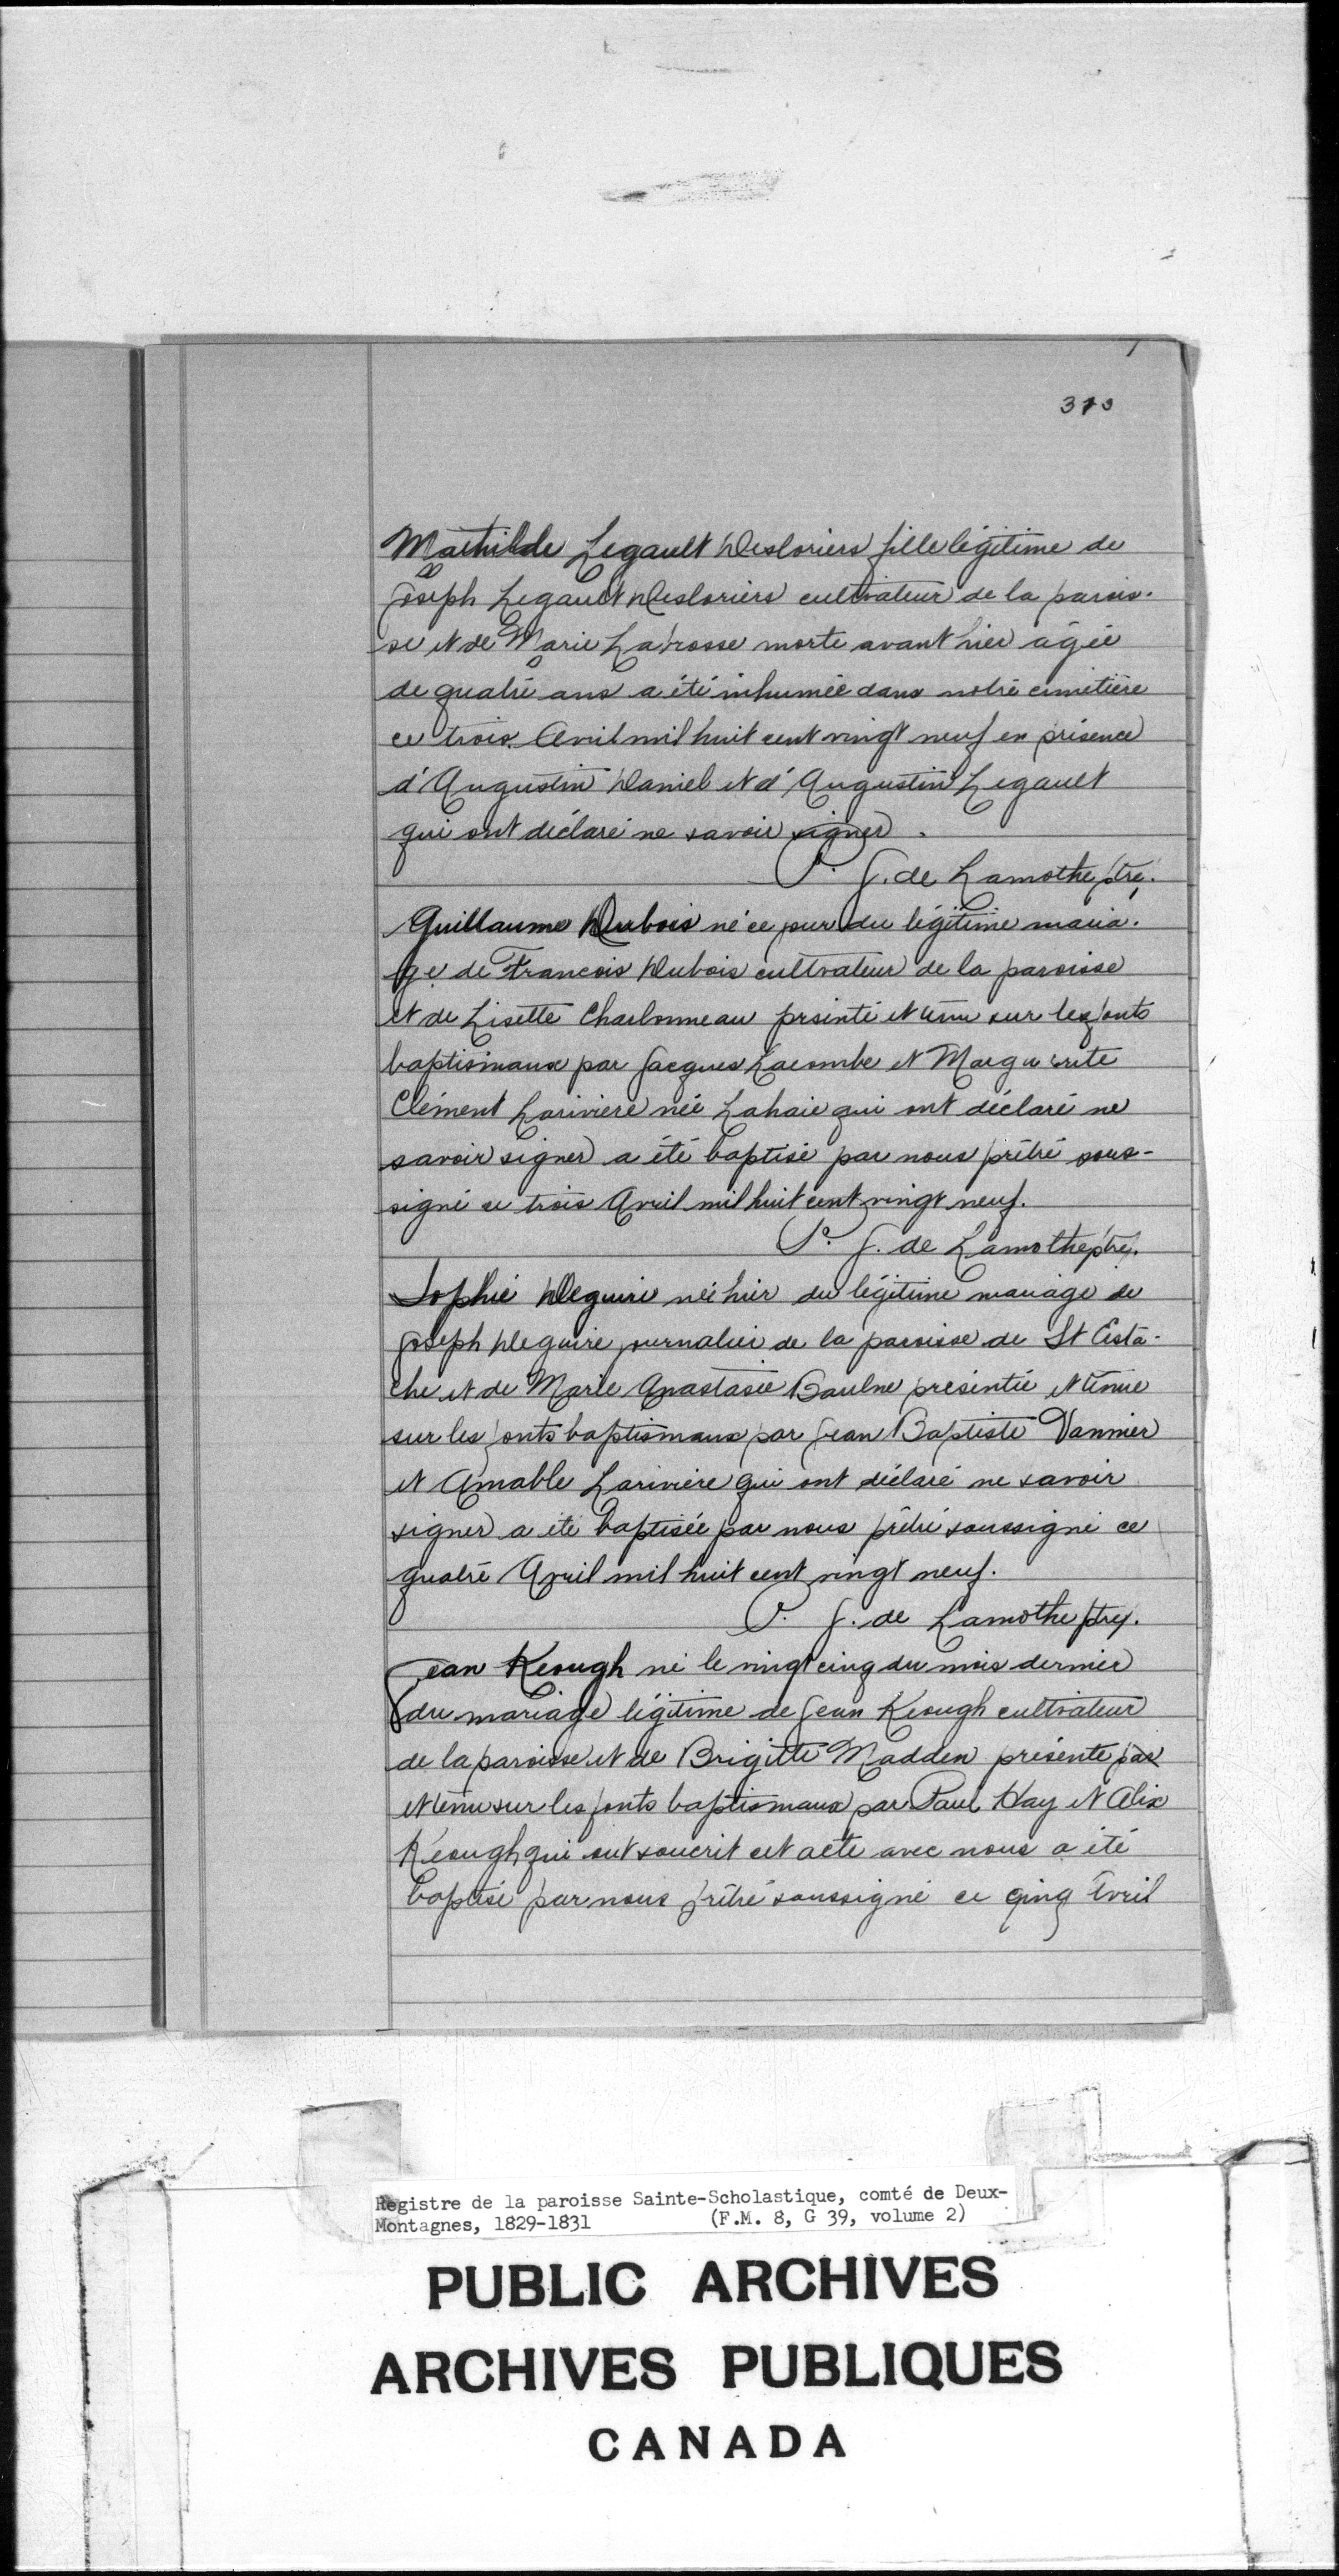 313
Mathilde Legault Desloriers fille légitime de
Joseph Legault Desloriers cultivateur de la parois-
se et de Marie Labrosse morte avant hier âgée
de quatre ans a été inhumée dans notre cimetière
ce trois Avril mil huit cent vingt neuf en présence
d'Augustin Daniel et d'Augustin Legault
qui ont déclaré ne savoir signer.
P. J. de Lamothe ptre.
Guillaume Dubois né ce jour du légitime maria-
ge de Francois Dubois cultvateur de la paroisse
et de Lisette Charbonneau prsenté et tenu sur les fonts
baptismaux par Jacques Lacombe et Marguerite
Clément Lariviere née Lahaie qui ont déclaré ne
savoir signer a été baptisé par nous prêtre sous-
signé ce trois Avril mil huit cent vingt neuf.
P. J. de Lamothe ptre.
Sophie Deguire née hier du légitime mariage de
Joseph Deguire journalier de la paroisse de St Esta-
che et de Marie Anastasie Baulne présentée et tenue
sur les fonts baptismaux par Jean Baptiste Vannier
et Amable Lariviere qui ont déclaré ne savoir
signer a été baptisée par nous prêtre soussigné ce
quatre Avril mil huit cent vingt neuf.
P. J. de Lamothe ptre.
Jean Keough né le vingt cinq du mois dernier
du mariage légitime de Jean Keough cultivateur
de la paroisse et de Brigitte Madden présenté par
et tenu sur les fonts baptismaux par Paul Hay et Alix
Keough qui ont soucrit cet acte avec nous a été
baptisé par nous prêtre soussigné ce cinq Avril
Registre de la paroisse Sainte-Scholastique, comté de Deux-
Montagnes, 1829-1831 (F.M. 8, G 39, volume 2)
PUBLIC ARCHIVES
ARCHIVES PUBLIQUES
CANADA